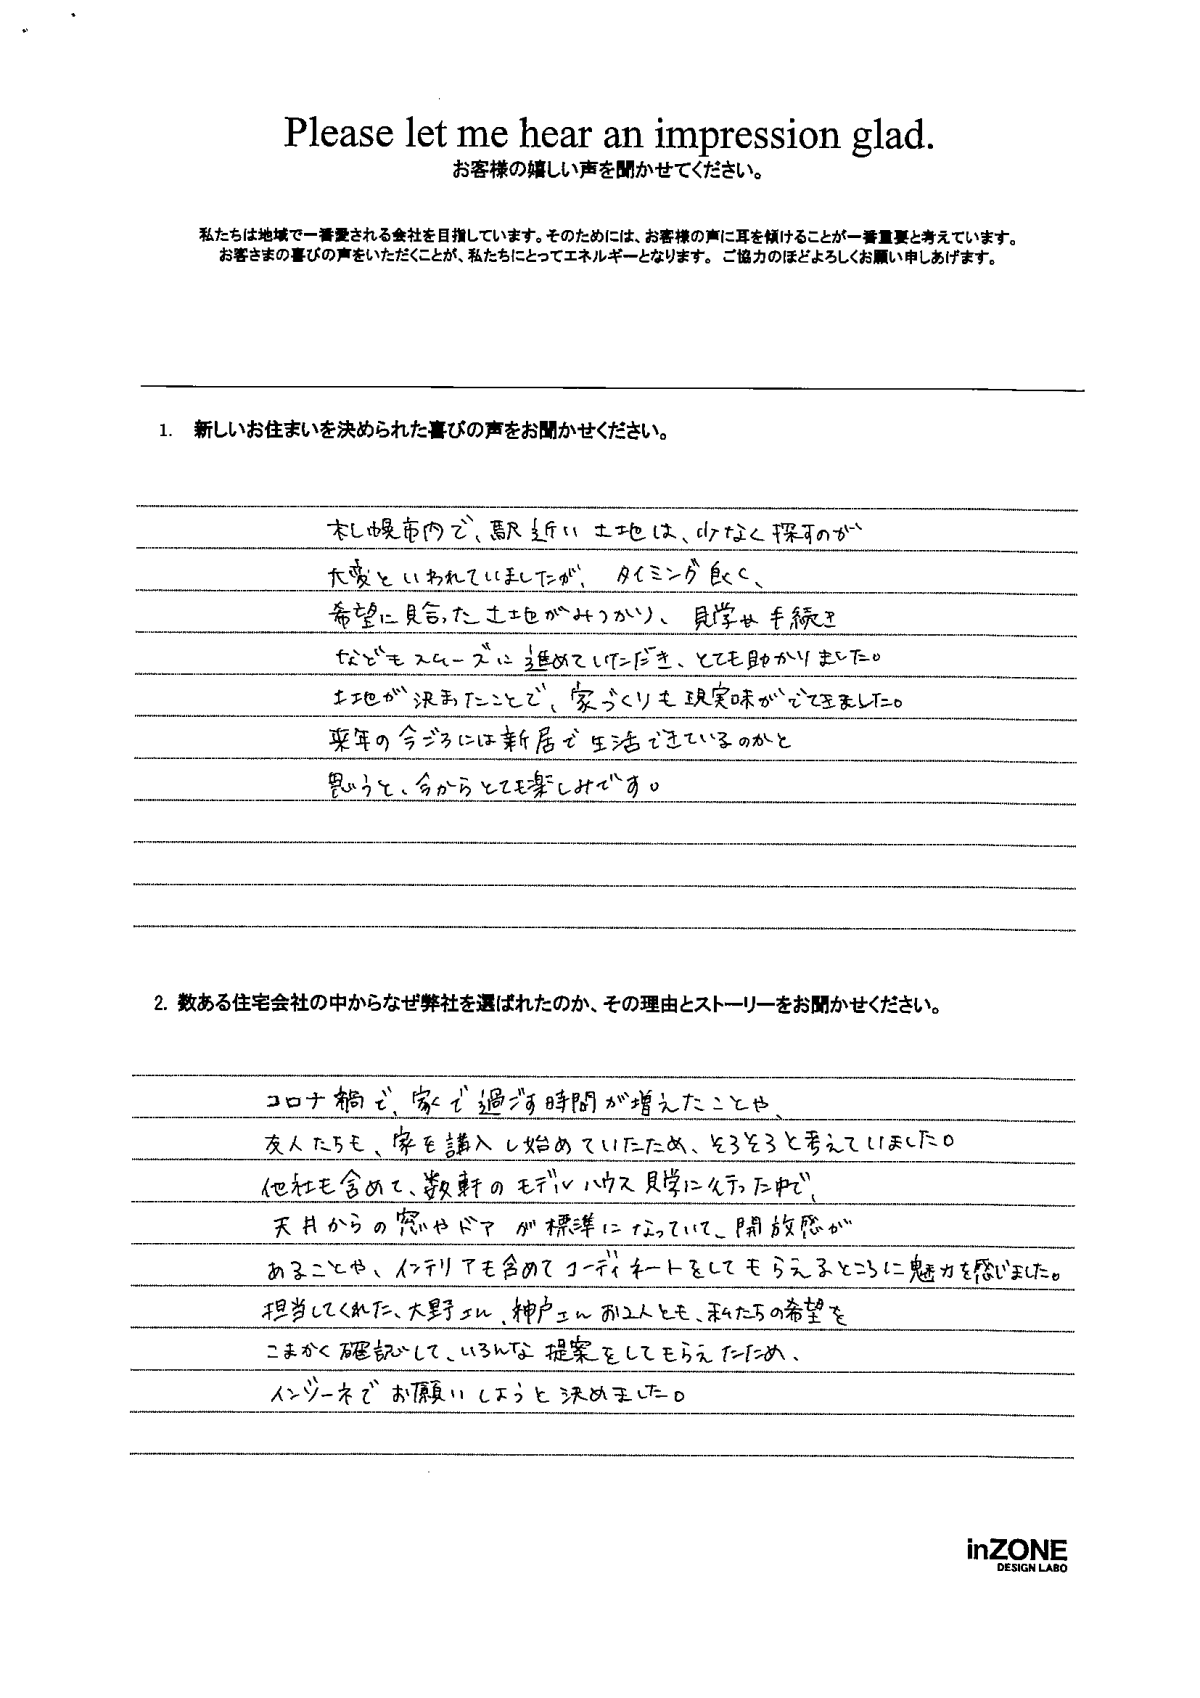 Please let me hear an impression glad.
お客様の嬉しい声を聞かせてください。
私たちは地域で一番愛される会社を目指しています。そのためには、お客様の声に耳を傾けることが一番重要と考えています。
お客さまの喜びの声をいただくことが、私たちにとってエネルギーとなります。ご協力のほどよろしくお願い申しあげます。
1. 新しいお住まいを決められた喜びの声をお聞かせください。
札幌市内で、駅近い土地は、少なく探すのが
大変といわれていましたが、タイミング良く、
希望に見合った土地がみつかり、見学や手続き
などもスムーズに進めていただき、とても助かりました。
土地が決まったことで、家づくりも現実味がでてきました。
来年の今ごろには新居で生活できているのかと
思うと、今からとても楽しみです。
2. 数ある住宅会社の中からなぜ弊社を選ばれたのか、その理由とストーリーをお聞かせください。
コロナ禍で、家で過ごす時間が増えたことや、
友人たちも、家を購入し始めていたため、そろそろと考えていました。
他社も含めて、数軒のモデルハウス見学に行った中で、
天井からの窓やドアが標準になっていて、開放感が
あることや、インテリアも含めてコーディネートをしてもらえるところに魅力を感じました。
担当してくれた、大野さん、神戸さんお2人とも、私たちの希望を
こまかく確認して、いろんな提案をしてもらえたため、
インゾーネでお願いしようと決めました。
inZONE
DESIGN LABO